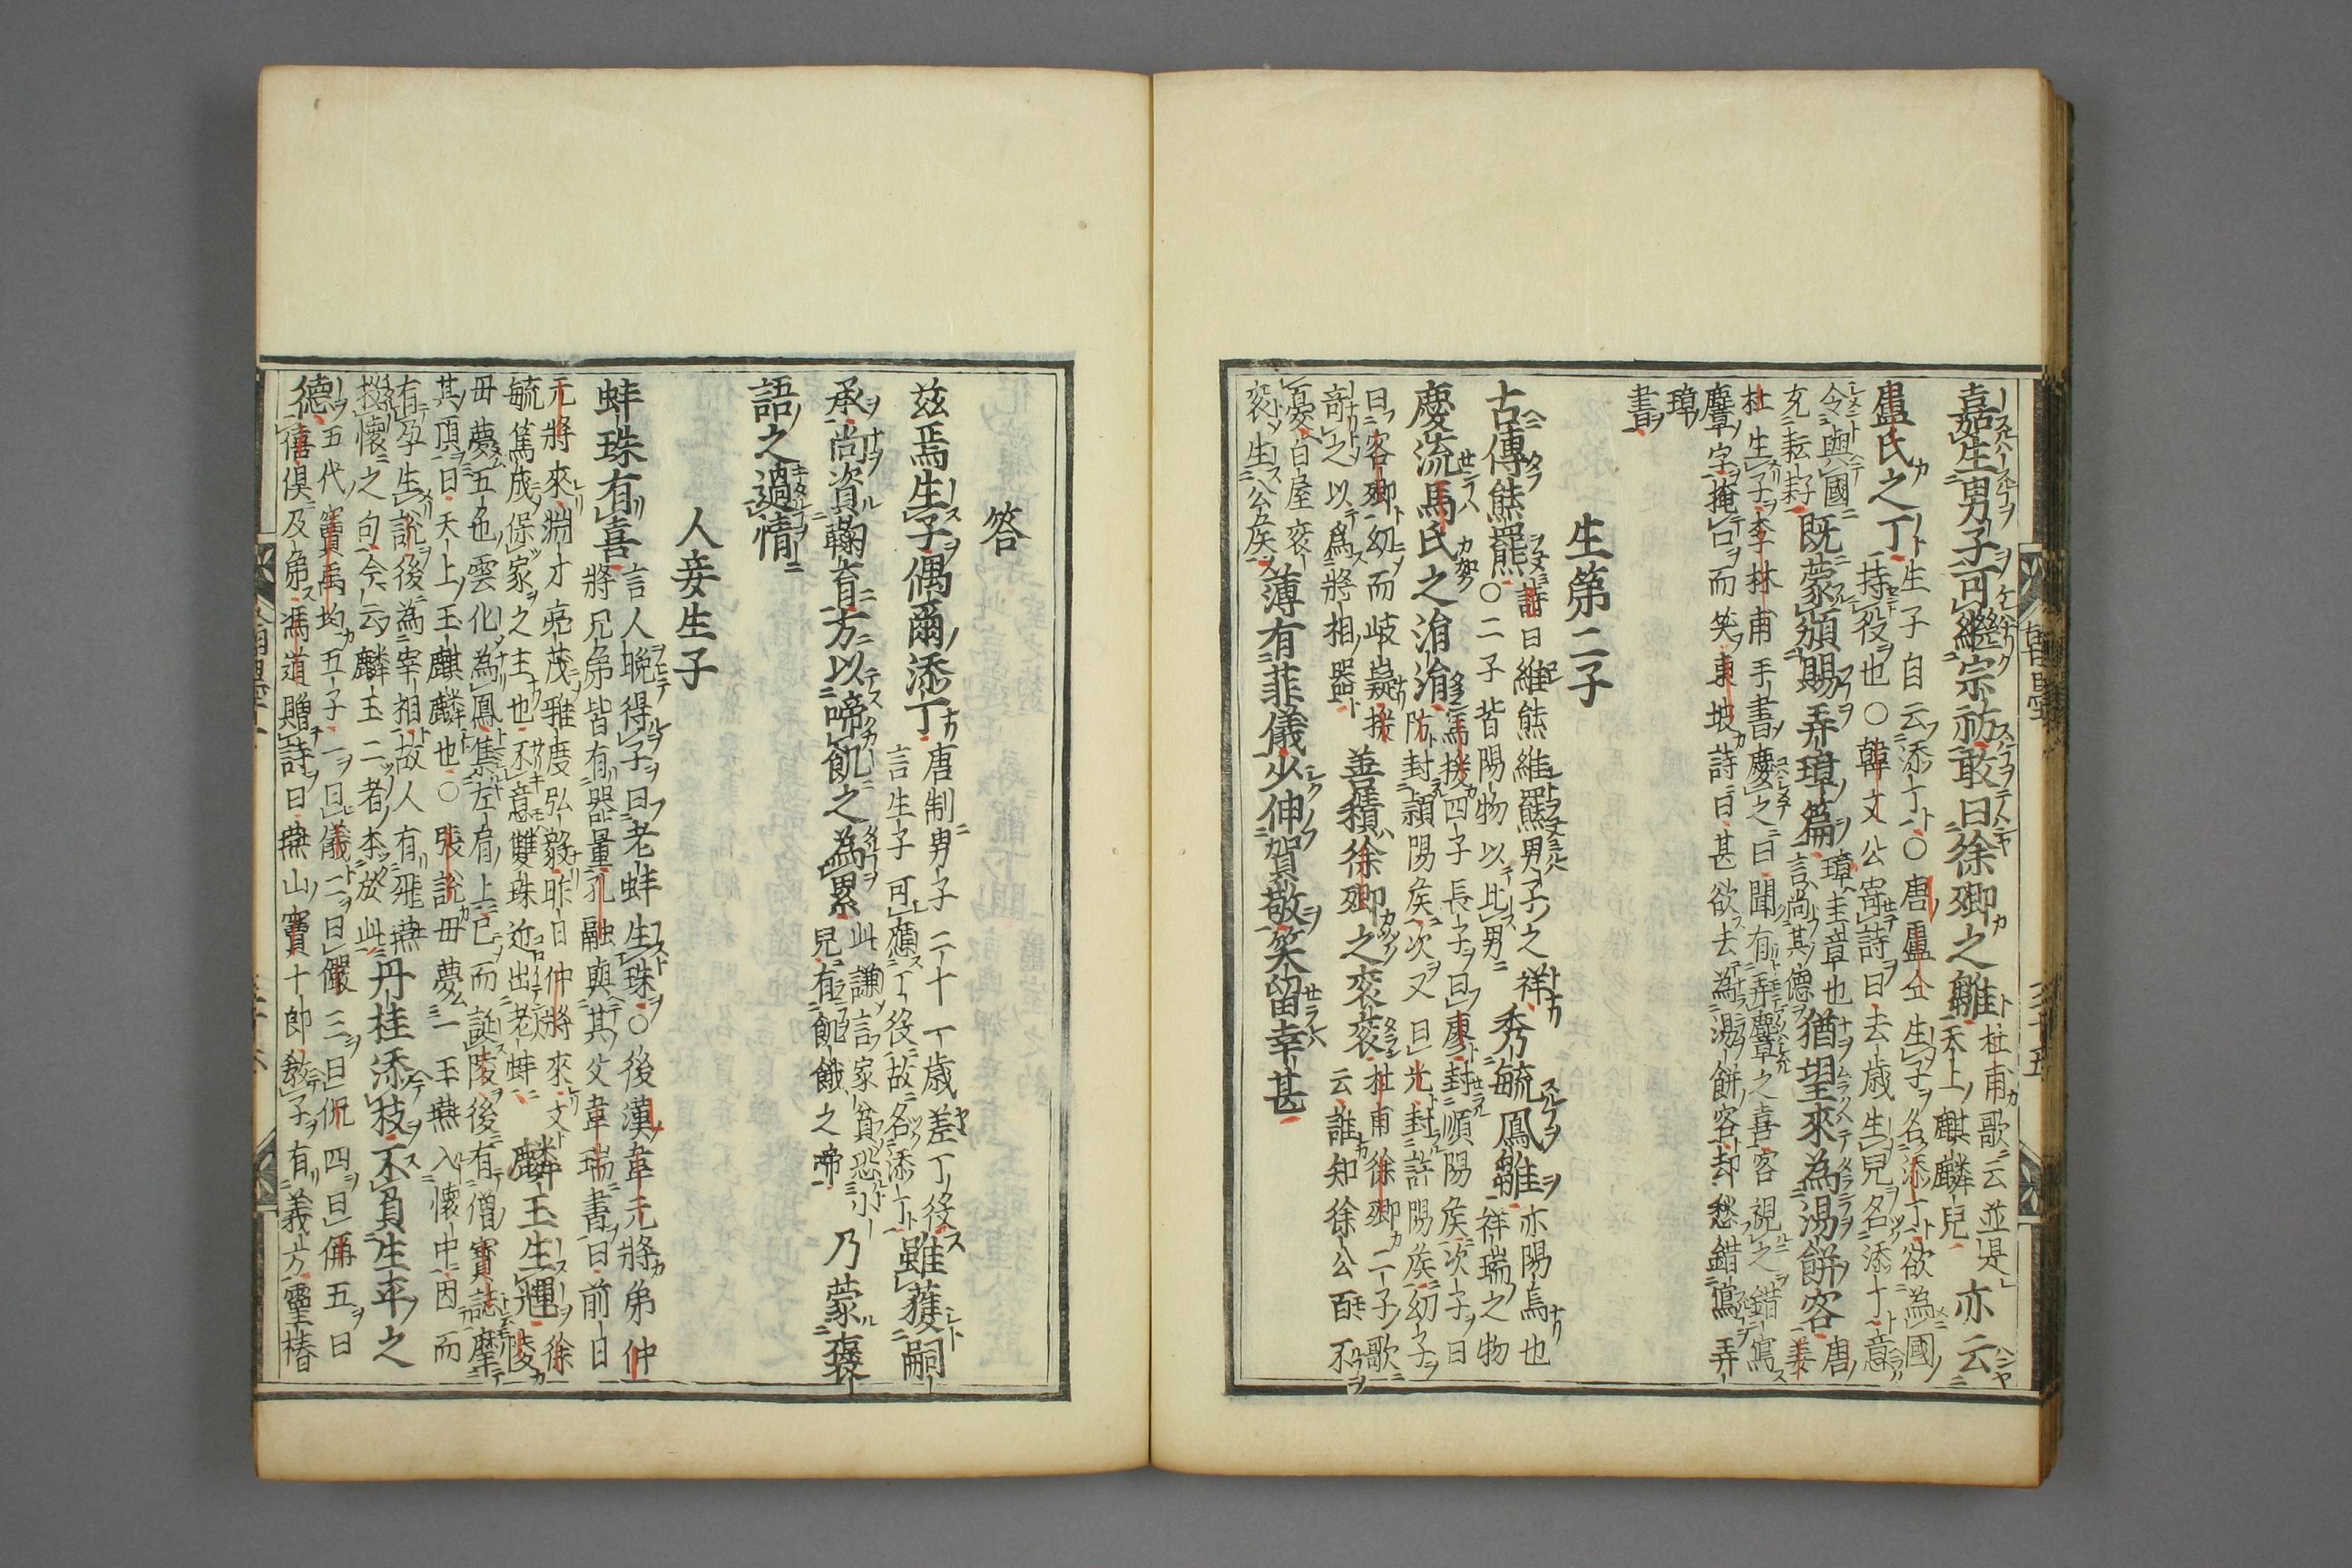 嘉生男子可繼宗祊敢曰徐卿之雛
杜甫歌云並是
天上麒麟兒
亦云
盧氏之丁
生子自云添丁○唐盧仝生子名添丁欲為國
持役也○韓文公寄詩曰去歲生兒名添丁意
令與國
充耘耔
既蒙頒賜弄璋篇
璋圭章也
言尚其德
猶望來為湯餅客
唐
姜
杜生子李林甫手書慶之曰聞有弄麞之喜客視之錯寫
麞字掩口而笑東坡詩曰甚欲去為湯餅客却愁錯寫弄
璋
書
生第二子
古傳熊羆
詩曰維熊維羆男子之祥
○二子皆陽物以比男
秀毓鳳雛
亦陽鳥也
祥瑞之物
慶流馬氏之洧洧
馬援四子長子曰廖封順陽侯次子曰
防封潁陽侯次又曰光封許陽侯幼子
曰客卿幼而岐嶷援
奇之以為將相器
善積徐卿之袞袞
杜甫徐卿二子歌
云誰知徐公百不
憂百屋袞
袞生公侯
薄有菲儀少伸賀敬笑留幸甚
答
茲焉生子偶爾添丁
唐制男子二十一歲差丁役
言生子可應丁役故名添丁
雖獲嗣
承尚資鞠育方以啼飢之為累
此謙言家貧恐小
兒有飢餓之啼
乃蒙褒
語之過情
人妾生子
蚌珠有喜
言人晚得子曰老蚌生珠○後漢韋元將弟仲
將兄弟皆有器量孔融與其父韋瑞書曰前日
元將來淵才亮茂雅度弘毅昨日仲將來文
毓篤成保家之主也不意雙珠近出老蚌
麟玉生輝
徐
陵
母夢五色雲化為鳳集左肩上已而誕陵後有僧寶誌摩
其頂曰天上玉麒麟也○張說母夢一玉燕入懷中因而
有孕生說後為宰相故人有飛燕
投懷之句今云麟玉二者本於此
丹桂添枝不負生平之
德
五代竇禹均五子一曰儀二曰儼三曰侃四曰偁五曰
僖俱及第馮道贈詩曰燕山竇十郎教子有義方靈椿